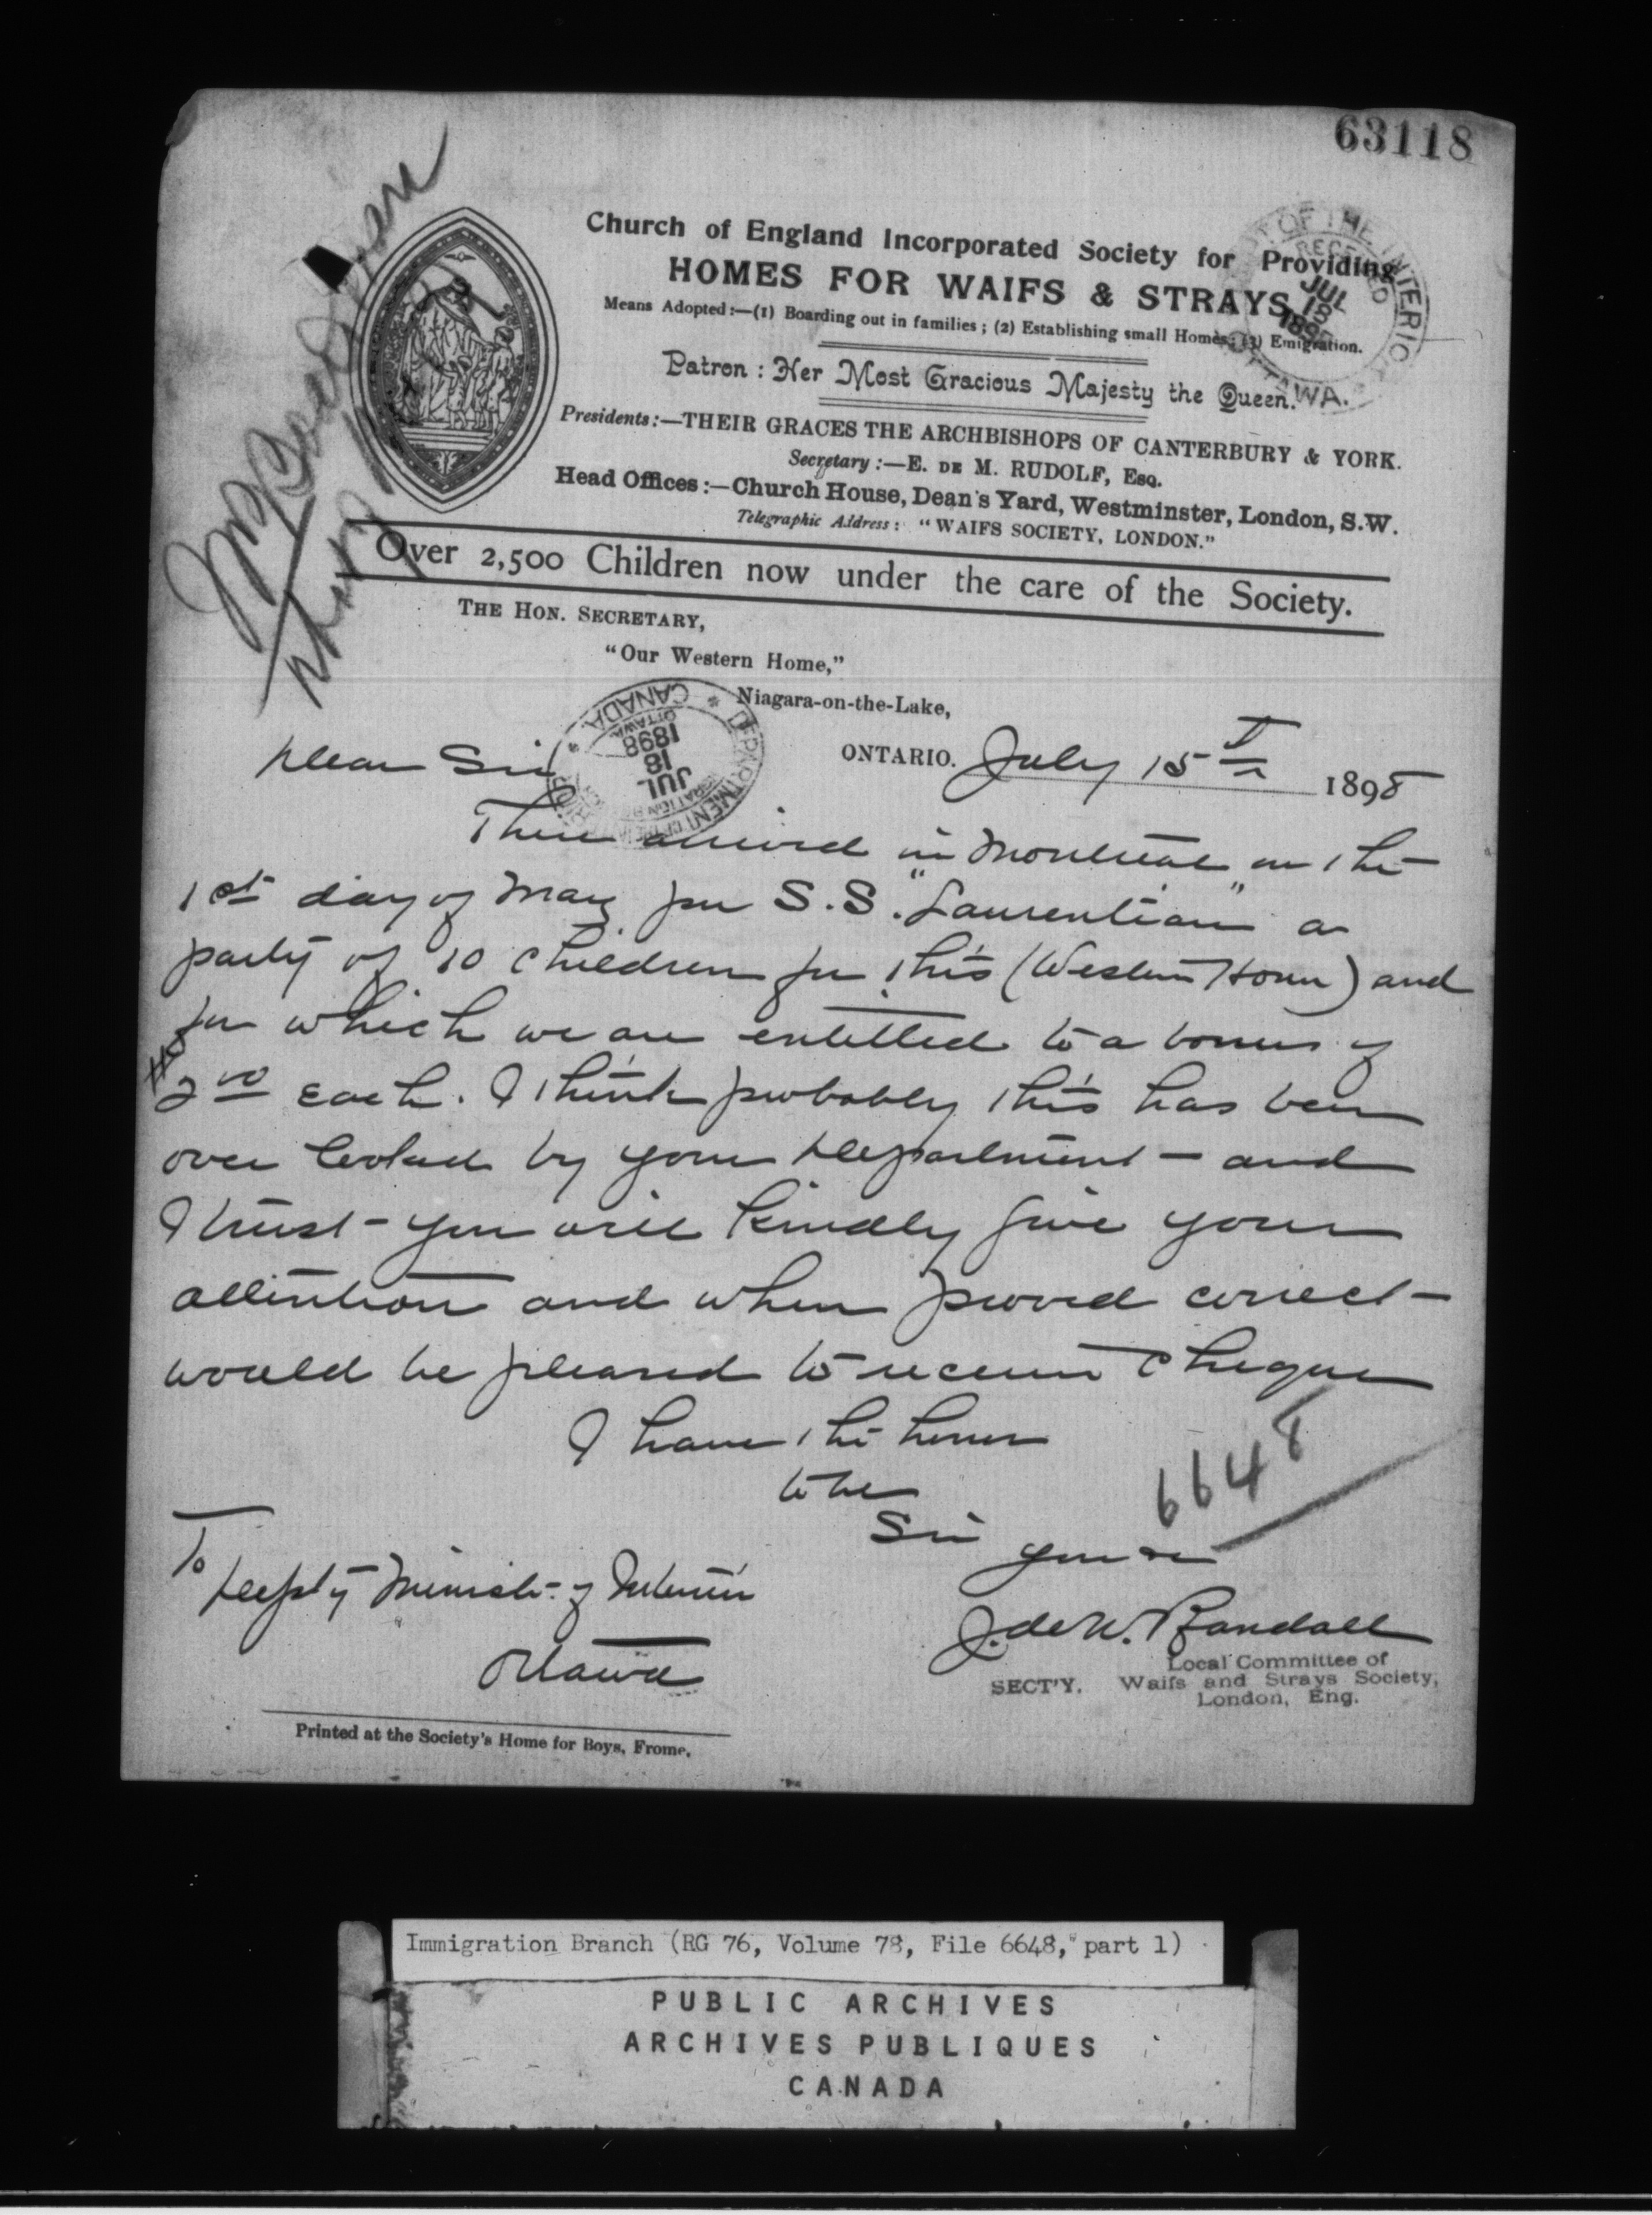 63118
Church of England Incorporated Society for Providing
HOMES FOR WAIFS & STRAYS
Means Adopted:—(1) Boarding out in families; (2) Establishing small Homes; (3) Emigration.
Patron: Her Most Gracious Majesty the Queen.
Presidents:—THEIR GRACES THE ARCHBISHOPS OF CANTERBURY & YORK.
Secretary:—E. DE M. RUDOLF, ESQ.
Head Offices:—Church House, Dean's Yard, Westminster, London, S.W.
Telegraphic Address: "WAIFS SOCIETY, LONDON."
Over 2,500 Children now under the care of the Society.
THE HON. SECRETARY,
"Our Western Home,"
Niagara-on-the-Lake,
ONTARIO. July 15th 1898
OF THE INTERIOR
RECEIVED
JUL
18
OTTAWA.
DEPARTMENT OF THE
JUL
18
1898
OTTAWA
CANADA
Dear Sir
There arrived in Montreal on the
1st day of May per S.S. "Laurentian" a
party of 10 children for this (Western Home) and
for which we are entitled to a bonus of
$2.00 each. I think probably this has been
over looked by your Department - and
I trust - you will kindly give your
attention and when proved correct -
would be pleased to receive cheque
I have the honor
to be
Sir
yours
6648
J. de W. Randall
SECT'Y. Local Committee of
Waifs and Strays Society,
London, Eng.
To
Depty Minister of Interior
Ottawa
Printed at the Society's Home for Boys, Frome.
Immigration Branch (RG 76, Volume 78, File 6648, part 1)
PUBLIC ARCHIVES
ARCHIVES PUBLIQUES
CANADA